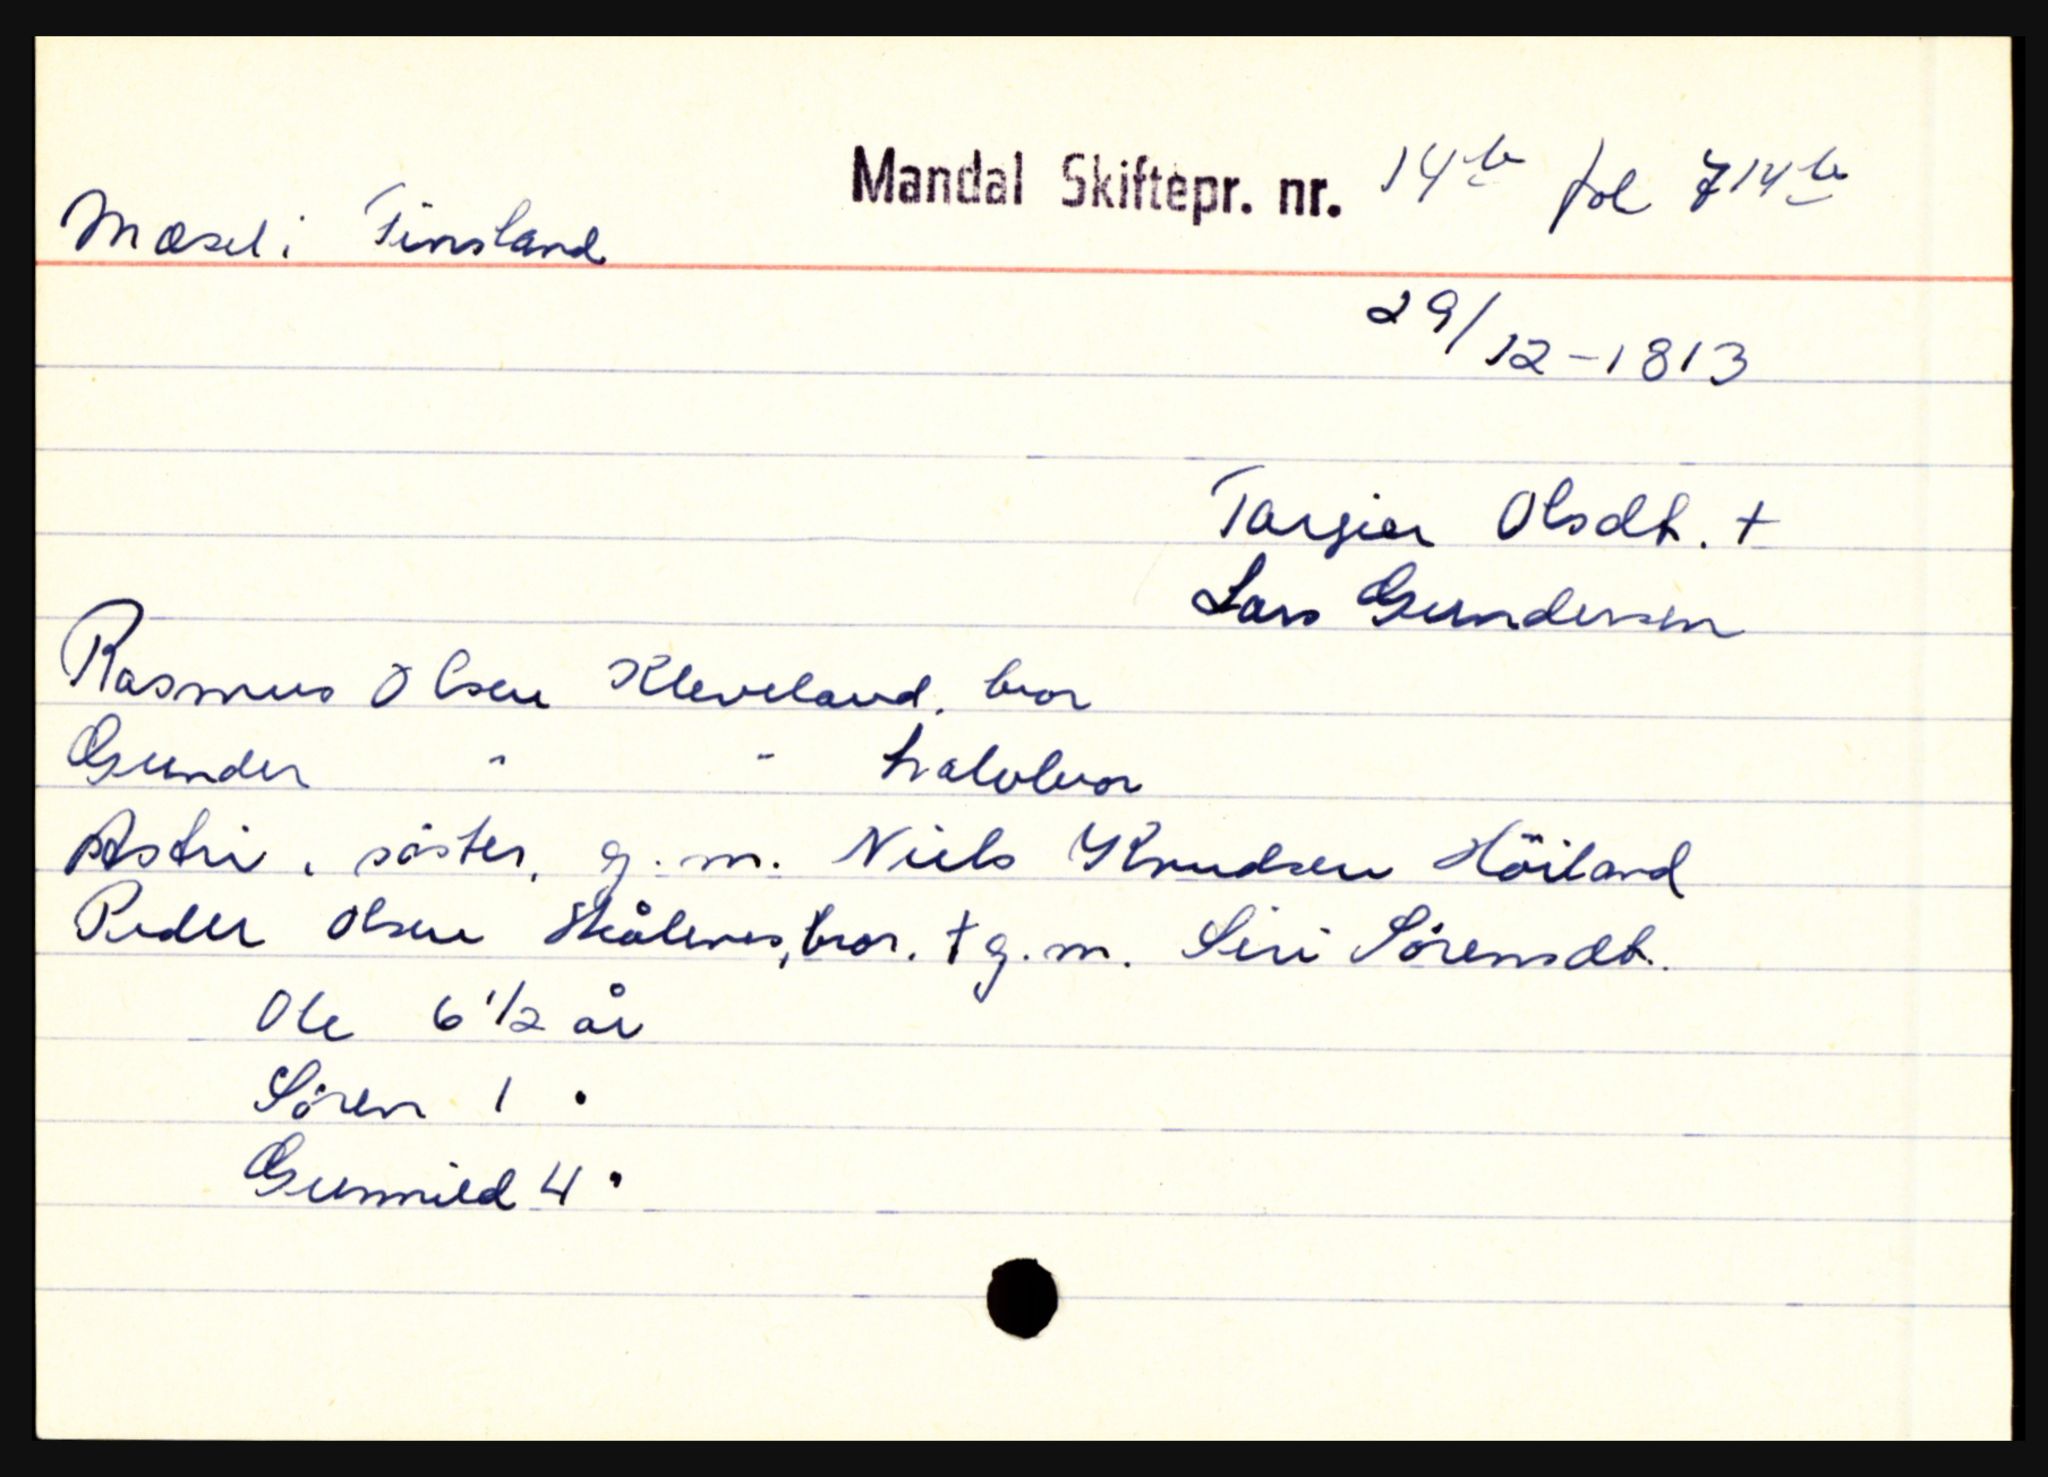 Mandal Skiftepr. nr. 14b fol 714b
Mæsel i Finsland
29/12-1813
Targier Olsdt. +
Lars Gundersen
Rasmus Olsen Kleveland, bror
Gunder " " halvbror
Astri, söster, g.m. Niels Knudsen Höiland
Peder Olsen Skålenes, bror. + g.m. Siri Sörensdt.
Ole 6 1/2 år
Sören 1 "
Gunnild 4 "